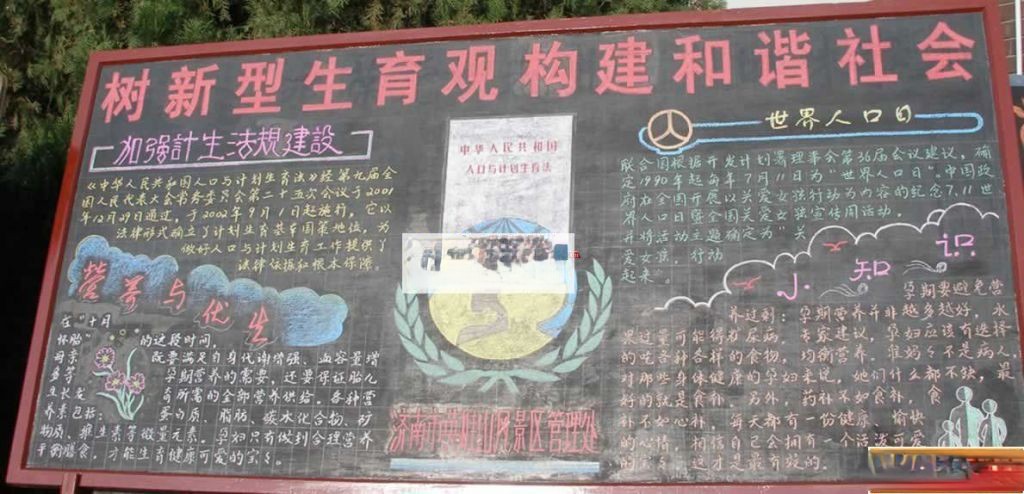 树新型生育观构建和谐社会
加强計生法规建設
《中华人民共和国人口与计划生育法》经第九届全
国人民代表大会常务委员会第二十五次会议于2001
年12月29日通过，于2002年9月1日起施行，它以
法律形式确立了计划生育基本国策地位，为
做好人口与计划生育工作提供了
法律依据和根本保障。
营养与优生
在“十月
怀胎”的这段时间，
母亲既要满足自身代谢增强、血容量增
多等孕期营养的需要，还要保证胎儿
生长发育所需的全部营养供给。各种营
养素包括：蛋白质、脂肪、碳水化合物、矿
物质、维生素等微量元素。孕妇只有做到合理营养
平衡膳食，才能生育健康可爱的宝宝。
中华人民共和国
人口与计划生育法
风景区管理处
世界人口日
联合国根据开发计划署理事会第36届会议建议，确
定1990年起每年7月11日为“世界人口日”。中国政
府在全国开展以关爱女孩行动为内容的纪念7.11世
界人口日暨全国关爱女孩宣传周活动，
并将活动主题确定为“关
爱女孩，行动
起来”。
小知识
孕期要避免营
养过剩：孕期营养并非越多越好，水
果过量可能得糖尿病。专家建议，孕妇应该有选择
的吃各种各样的食物，均衡营养。准妈々不是病人，
对那些身体健康的孕妇来说，她们什么都不缺，最
好的就是食补。另外，药补不如食补，食
补不如心补，每天都有一份健康、愉快
的心情，相信自己会拥有一个活泼可爱
的宝々，这才是最有效的。